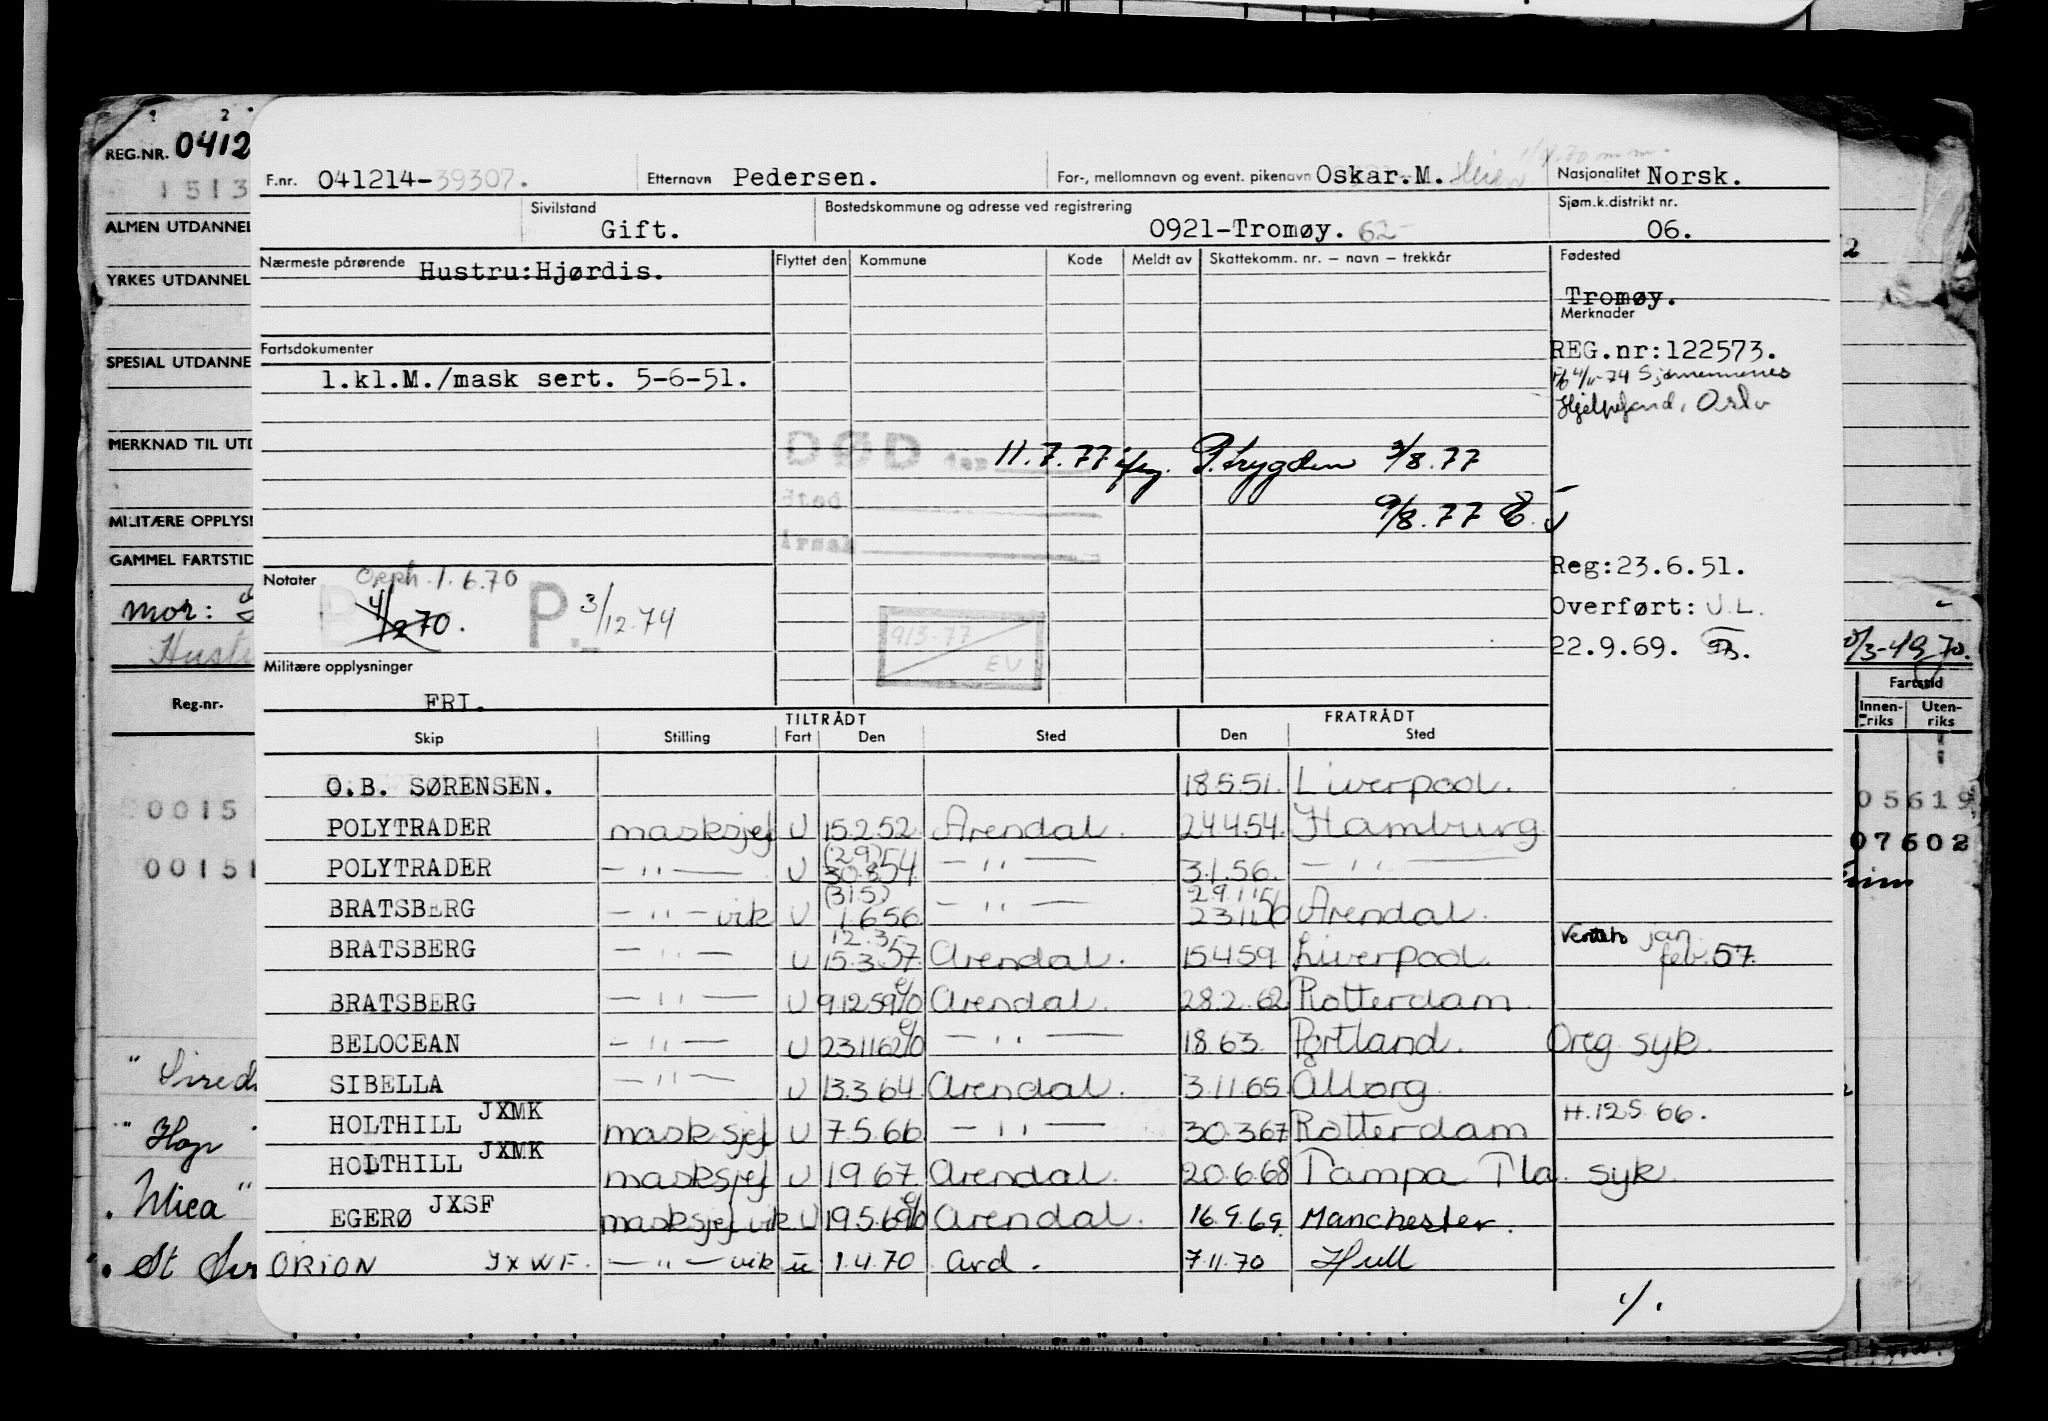 REG.NR. 0412
1513
ALMEN UTDANNEL
YRKES UTDANNEL
SPESIAL UTDANNE
MERKNAD TIL UTD
MILITÆRE OPPLYS
GAMMEL FARTSTID
mor:
Hust
Reg.nr.
0015
00151
" Sired
" Hop "
. Mica "
" . St Svi
F.nr. 041214-39307. Etternavn Pedersen. For-, mellomnavn og event. pikenavn Oskar.M. Nasjonalitet Norsk.
Sivilstand Gift. Bostedskommune og adresse ved registrering 0921-Tromøy. 62 Sjøm.k.distrikt nr. 06.
Nærmeste pårørende Hustru:Hjørdis. Flyttet den Kommune Kode Meldt av Skattekomm. nr. – navn – trekkår Fødested
Tromøy.
Merknader
Fartsdokumenter REG.nr:122573.
1.kl.M./mask sert. 5-6-51. 4/11-74 Sjømennenes
Hjelpefond, Oslo
DØD den 11.7.77 ifg. P.trygden 3/8.77
Sted 9/8.77
Årsak
Reg:23.6.51.
Notater Opph. 1.6.70
4/2 70. P. 3/12.74 Overført: U.L.
913-77 EV 22.9.69.
Militære opplysninger
FRI.
TILTRÅDT FRATRÅDT
Skip Stilling Fart Den Sted Den Sted
O.B. SØRENSEN. 18.5.51. Liverpool.
POLYTRADER masksjef U 15.2.52. Arendal. 24.4.54. Hamburg
POLYTRADER — " — U (29) 30.8.54. — " — 3.1.56. — " —
BRATSBERG — " — vik U (31.5) 1.6.56 — " — 29.11.56 23.11.56 Arendal.
BRATSBERG — " — U 12.3.57 15.3.57. Arendal. 15.4.59 Liverpool. Ventet jan feb. 57.
BRATSBERG — " — U 9.12.59 % Arendal. 28.2.62 Rotterdam
BELOCEAN — " — U 23.11.62 % — " — 1.8.63. Portland. Oreg. syk.
SIBELLA — " — U 13.3.64 Arendal. 3.11.65 Ålborg
HOLTHILL JXMK masksjef U 7.5.66 — " — 30.3.67 Rotterdam H.12.5.66.
HOLTHILL JXMK masksjef U 1.9.67. Arendal. 20.6.68 Tampa Fla. syk.
EGERØ JXSF masksjef vik U 19.5.69 % Arendal. 16.9.69. Manchester.
ORION JXWF. — " — vik u 1.4.70 Ard. 7.11.70 Hull
./.
3-1970.
Fartstid
Innen-riks Uten-riks
05619
07602